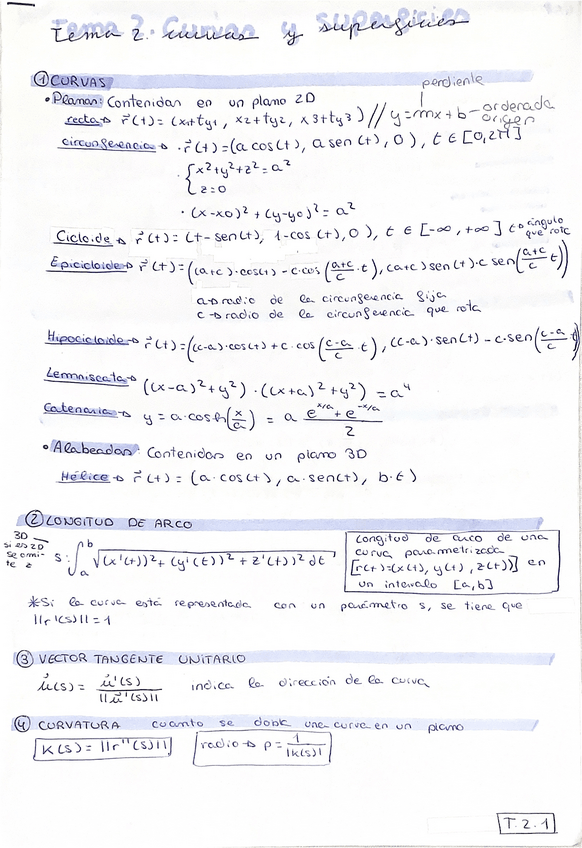 Tema 2. Curvas y superficies
① CURVAS
• Planas: Contenidas en un plano 2D
pendiente
recta → r⃗(t) = (x1+ty1, x2+ty2, x3+ty3) // y=mx+b - ordenada origen
circunferencia → · r⃗(t)=(a cos(t), a sen(t), 0), t ∈ [0,2π]
· { x²+y²+z²=a²
z=0
· (x-x0)²+(y-y0)²=a²
Cicloide → r⃗(t)=(t-sen(t), 1-cos(t), 0), t ∈ [-∞, +∞] t→ ángulo que rota
Epicicloide → r⃗(t)=((a+c)·cos(t)-c·cos((a+c)/c ·t), (a+c)sen(t)·c sen((a+c)/c t))
a→ radio de la circunferencia fija
c→ radio de la circunferencia que rota
Hipocicloide → r⃗(t)=((c-a)·cos(t)+c·cos((c-a)/c t), (c-a)·sen(t)-c·sen((c-a)/c t))
Lemniscata → ((x-a)²+y²)·((x+a)²+y²)=a⁴
Catenaria → y=a·cosh(x/a) = a (e^(x/a)+e^(-x/a))/2
• Alabeadas: Contenidas en un plano 3D
Hélice → r⃗(t)=(a·cos(t), a·sen(t), b·t)
② LONGITUD DE ARCO
3D
si es 2D
se omi-
te z
s: ∫ₐᵇ √((x'(t))²+(y'(t))²+z'(t))² dt
Longitud de arco de una
curva parametrizada
[r(t)=(x(t), y(t), z(t))] en
un intervalo [a,b]
*Si la curva está representada con un parámetro s, se tiene que
||r'(s)||=1
③ VECTOR TANGENTE UNITARIO
u⃗(s) = u⃗'(s)/||u⃗'(s)|| indica la dirección de la curva
④ CURVATURA cuanto se dobla una curva en un plano
K(s)=||r''(s)||
radio → ρ= 1/|k(s)|
T.2.1